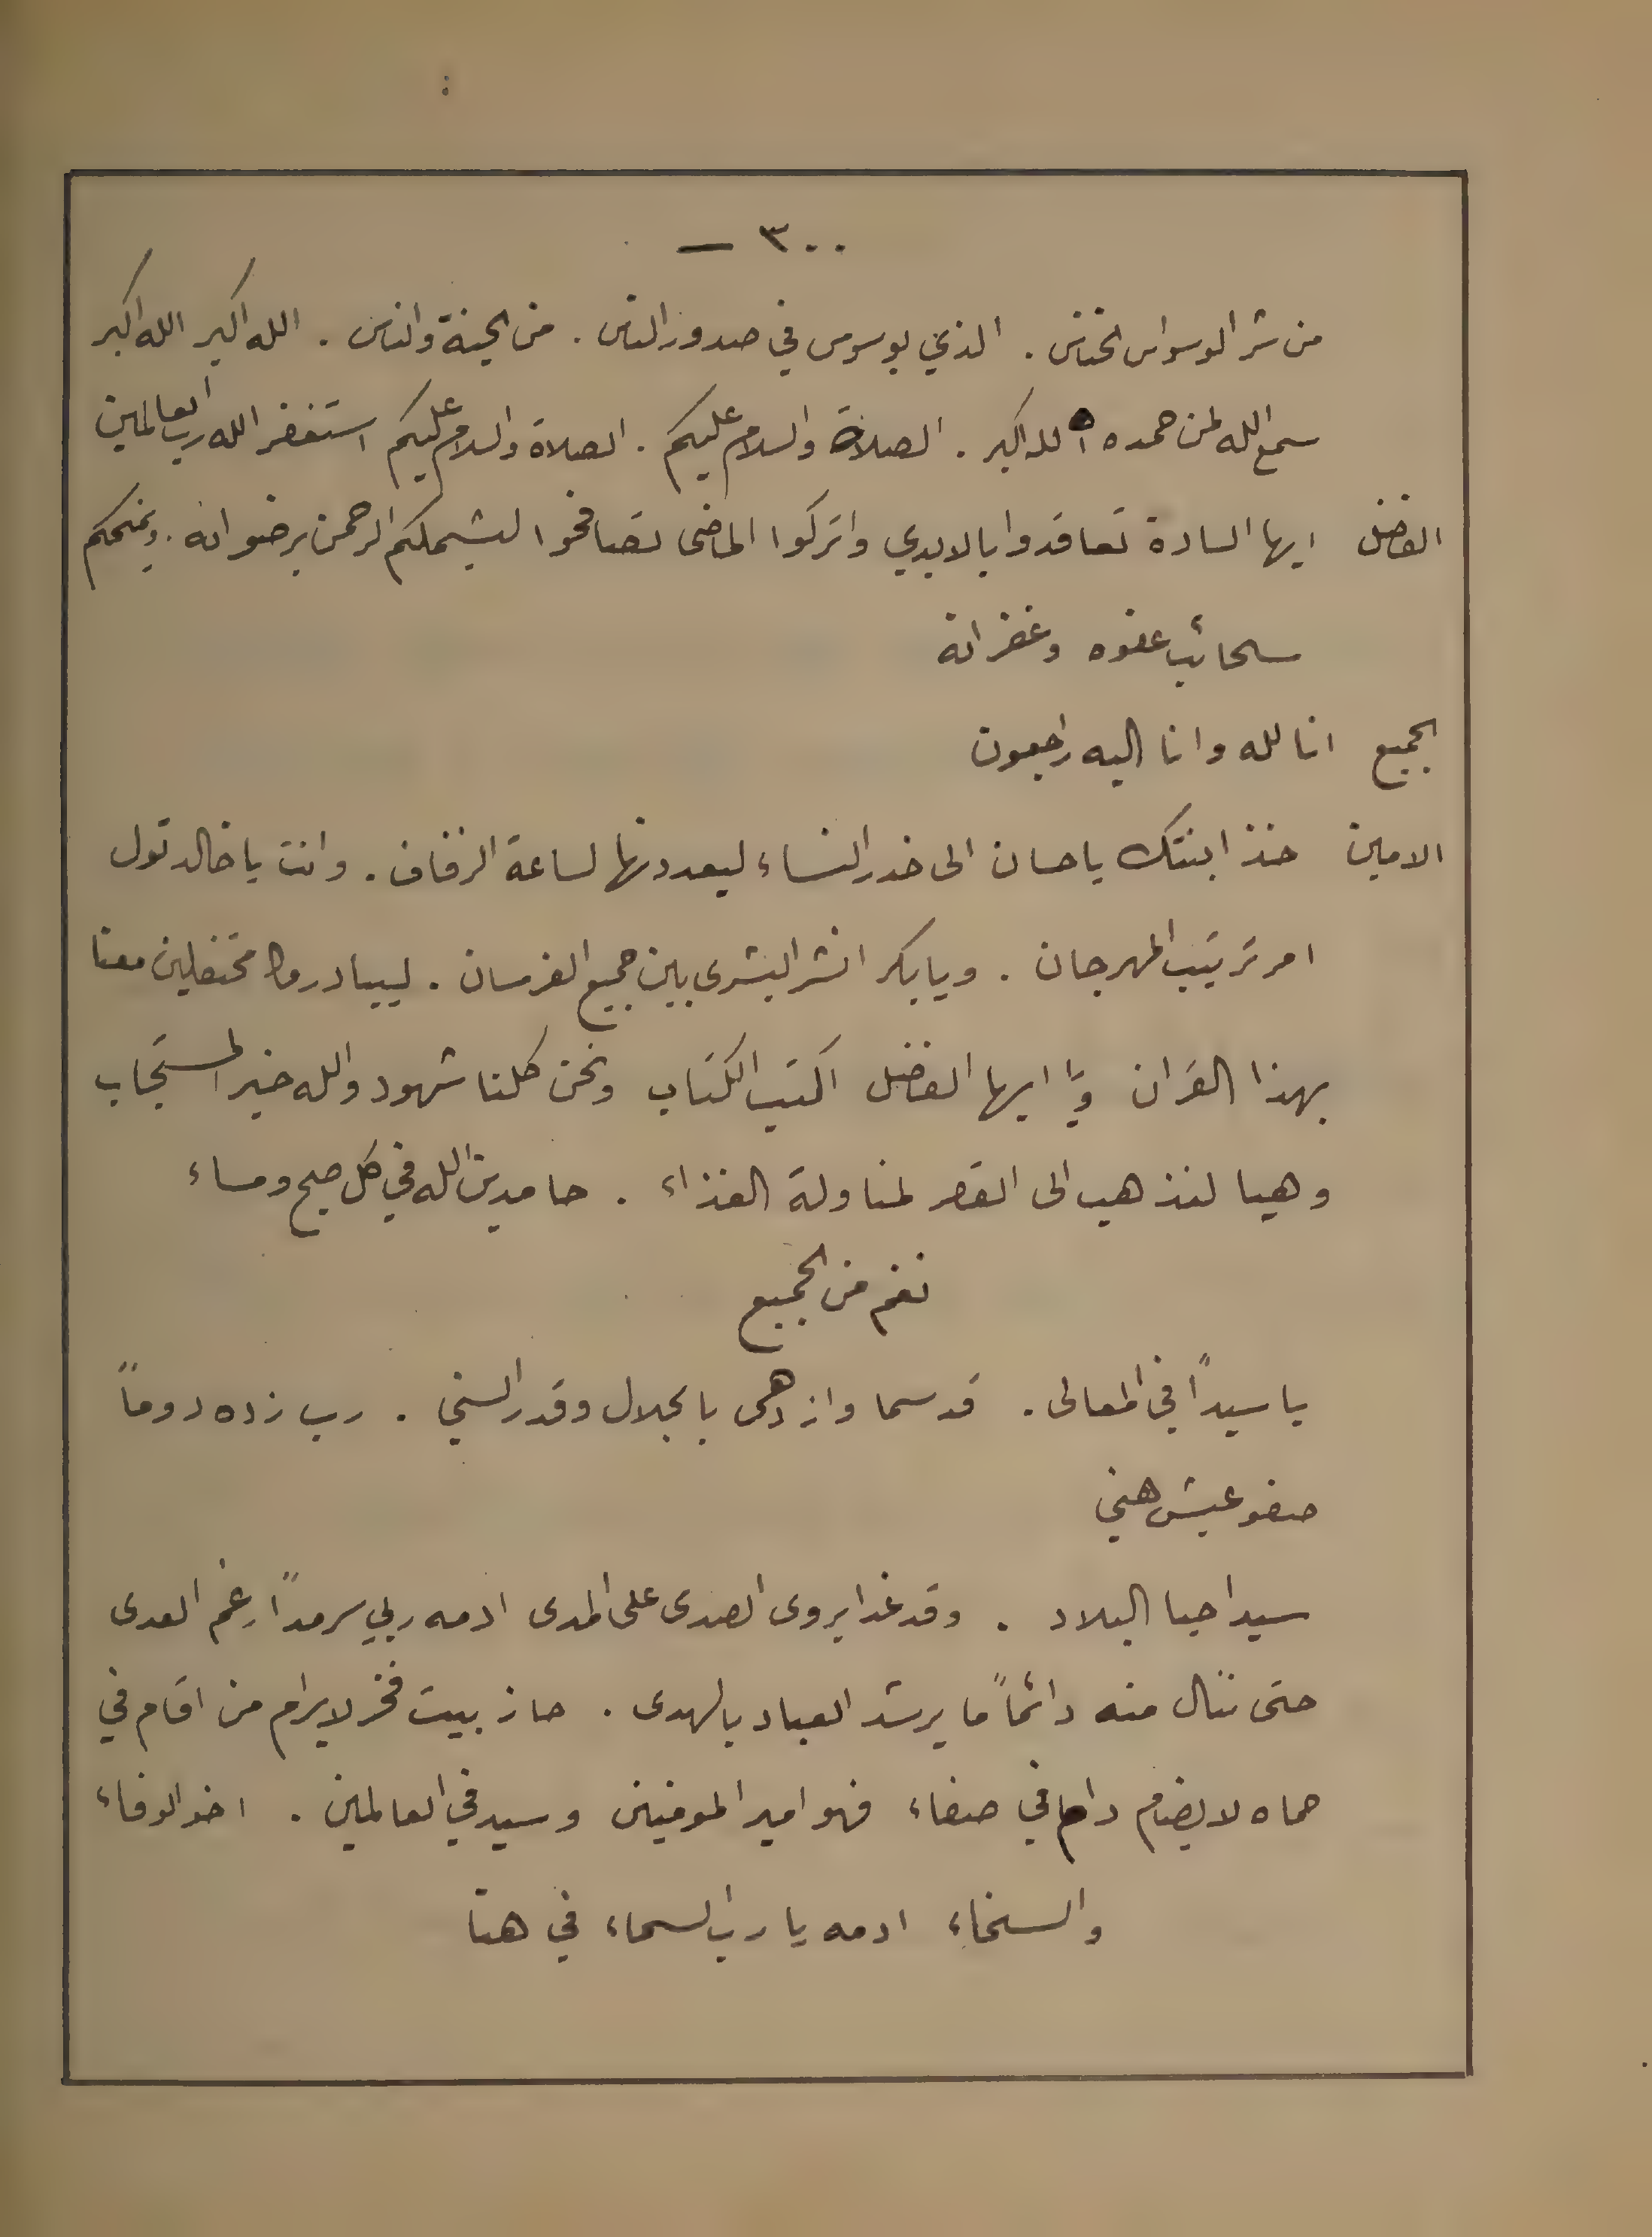 ٣٠٠ —
من شر الوسواس الخناس . الذي يوسوس في صدور الناس . من الجنة والناس . الله اكبر الله اكبر
سمع الله لمن حمده الله اكبر . الصلاة والسلام عليكم . الصلاة والسلام عليكم استغفر الله رب العالمين
الفاضل ايها السادة تعاقدوا بالايدي واتركوا الماضى لتصافحوا ليشملكم الرحمن برضوانه . ويمنحكم
سحائب عفوه وغفرانه
الجميع انا لله وانا اليه راجعون
الامين خذ ابنتك يا حسان الى خدر النساء ليعددنها لساعة الزفاف . وانت يا خالد تول
امر ترتيب المهرجان . ويا بكر انشر البشرى بين جميع الفرسان . ليبادروا محتفلين معنا
بهذا القران ويا ايها الفاضل اكتب الكتاب ونحن كلنا شهود والله خير المستجاب
وهيا لنذهب الى القصر لمناولة الغذاء . حامدين الله في كل صبح ومساء
نغم من الجميع
يا سيداً في المعالى . قد سما وازدهى بالجلال وقدر السني . رب زده دوماً
صفو عيش هني
سيد احيا البلاد . وقد غدا يروى الصدى على المدى ادمه ربي سرمداً رغم العدى
حتى ننال منه دائماً ما يرشد العباد بالهدى . حاز بيت فخر لا يرام من اقام في
حماه لا يضام دام في صفاء فهو امير المومنين وسيد في العالمين . اخو الوفاء
والسخاء ادمه يا رب السماء في هنا